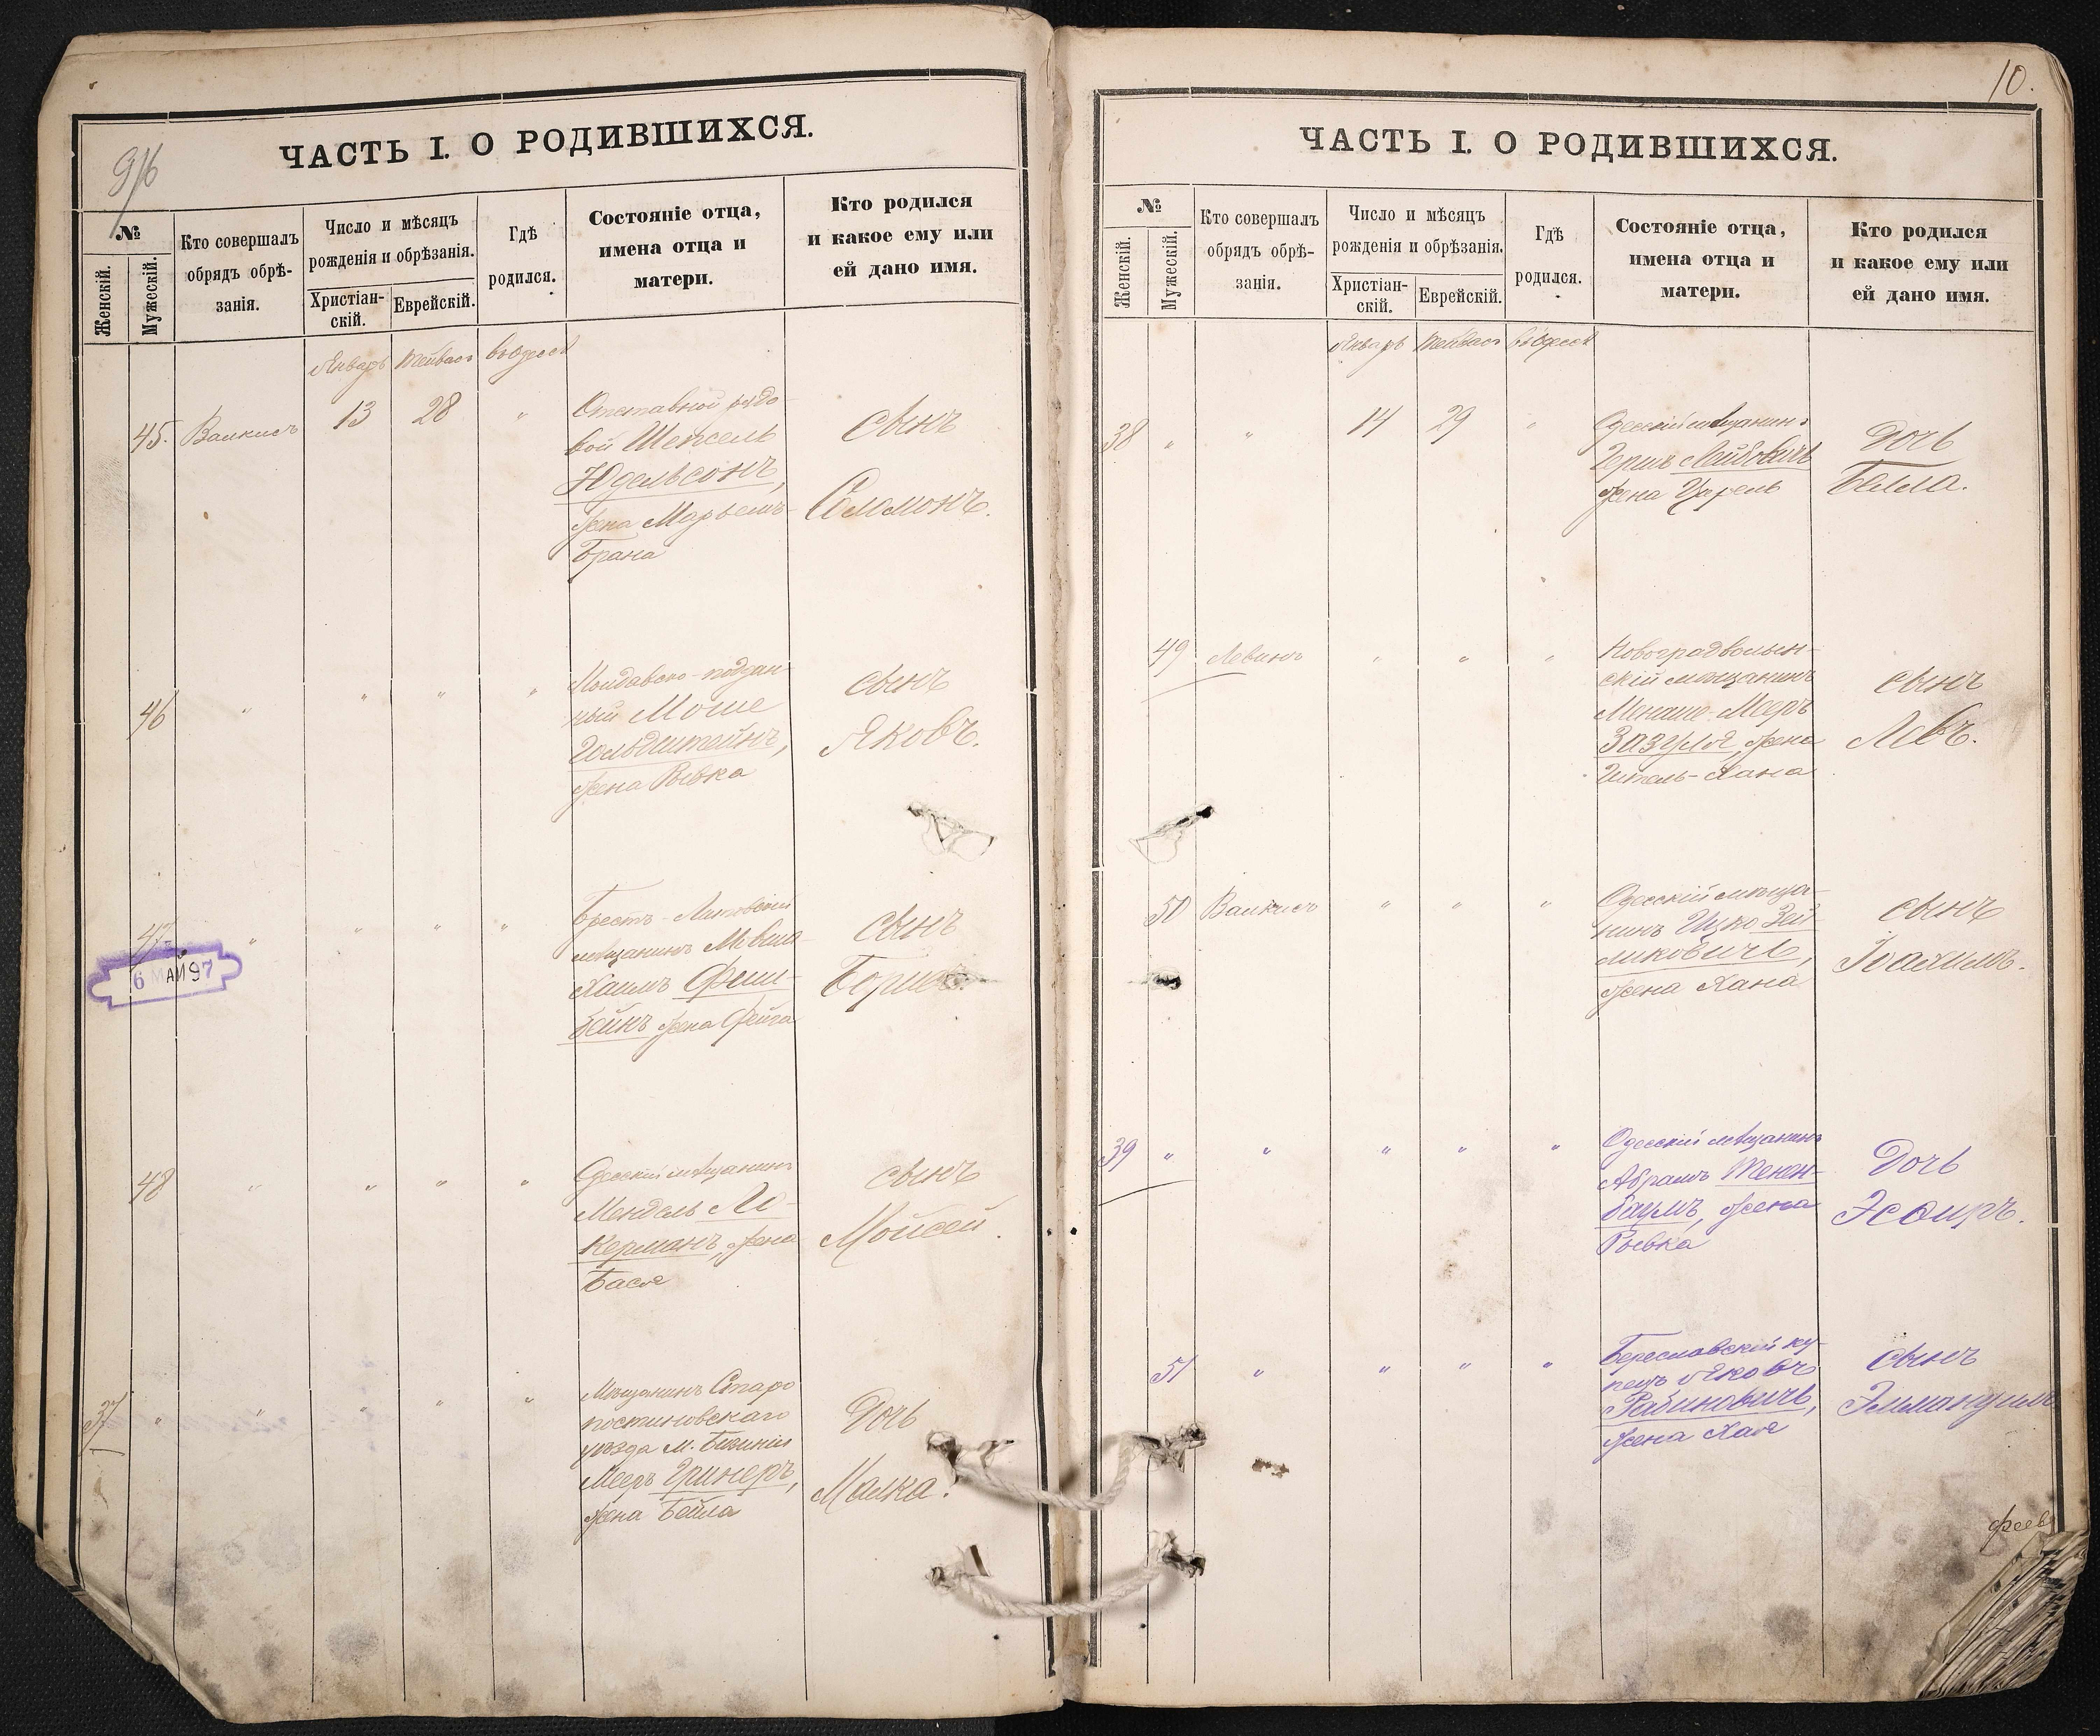 9/16
ЧАСТЬ I. О РОДИВШИХСЯ.
№
Женскій.
Мужескій.
Кто совершалъ
обрядъ обрѣ-
занія.
Число и мѣсяцъ
рожденія и обрѣзанія.
Христіан-
скій.
Еврейскій.
Гдѣ
родился.
Состояніе отца,
имена отца и
матери.
Кто родился
и какое ему или
ей дано имя.
Январь Тейвасъ въ Одессѣ
45. Валкисъ 13 28 "
Отставной рядо-
вой Шепсель
Юдельсонъ,
жена Марьемъ-
Брана
сынъ
Соломонъ.
46 " " " "
Молдавско-поддан-
ный Моше
Гольдштейнъ,
жена Рывка
сынъ
Яковъ.
47 " " " "
6 МАЙ 97
Брестъ-Литовскій
мѣщанинъ Мовша
Хаимъ Фиш-
бейнъ жена Фейга
сынъ
Борисъ.
48 " " " "
Одесскій мѣщанинъ
Мендель Ле-
керманъ, жена
Бася
сынъ
Мойсей.
37 " " " " "
Мѣщанинъ Старо
костиновскаго
уѣзда м.
Мееръ Гринеръ,
жена Бейла
Дочь
Малка.
10.
ЧАСТЬ I. О РОДИВШИХСЯ.
№
Женскій.
Мужескій.
Кто совершалъ
обрядъ обрѣ-
занія.
Число и мѣсяцъ
рожденія и обрѣзанія.
Христіан-
скій.
Еврейскій.
Гдѣ
родился.
Состояніе отца,
имена отца и
матери.
Кто родился
и какое ему или
ей дано имя.
Январь Тейвасъ въ Одессѣ
38 " " 14 29 "
Одесскій мѣщанинъ
Гершъ Лейбовичъ
жена Цирель
Дочь
Бэлла.
49 Левинъ " " "
Новоградволын-
скій мѣщанинъ
Менаше-Мееръ
Зазуля, жена
Гитель-Хана
сынъ
Левъ.
50 Валкисъ " " "
Одесскій мѣща-
нинъ Ицко Зей-
ликовичъ,
жена Хана
сынъ
Іоахимъ.
39 " " " " "
Одесскій мѣщанинъ
Абрамъ Тенен-
баумъ, жена
Рывка
Дочь
Эсѳирь.
51 " " " "
Береславскій ку-
пецъ Яковъ
Рабиновичъ,
жена Хая
сынъ
Эммануилъ